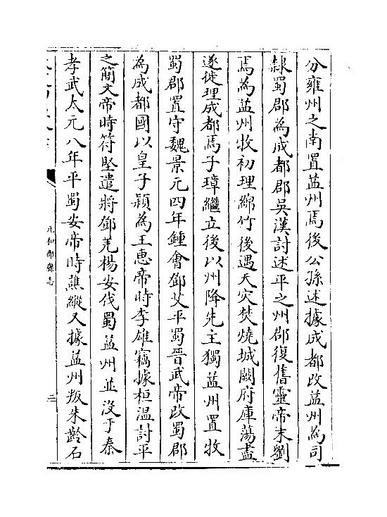 分雍州之南置益州焉後公孫述據成都改益州為司
隸蜀郡為成都郡吳漢討述平之州郡復舊靈帝末劉
焉為益州牧初理綿竹後遇天災焚燒城闕府庫蕩盡
遂徙理成都焉子璋繼立後以州降先主獨益州置牧
蜀郡置守魏景元四年鍾會鄧艾平蜀晉武帝改蜀郡
為成都國以皇子穎為王惠帝時李雄竊據桓溫討平
之簡文帝時符堅遣將鄧羌楊安伐蜀益州並沒于秦
孝武太元八年平蜀安帝時譙縱又據益州叛朱齡石
元和郡縣志